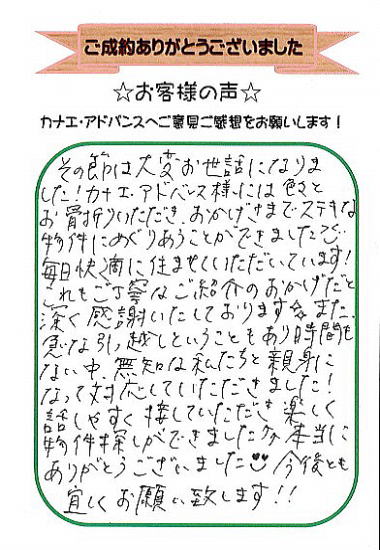 ご成約ありがとうございました
☆お客様の声☆
カナエ・アドバンスへご意見ご感想をお願いします！
その節は大変お世話になりま
した！カナエ・アドバンス様には色々と
お骨折りいただき、おかげさまでステキな
物件にめぐりあうことができました
毎日快適に住ませていただいています！
これもご丁寧なご紹介のおかげだと
深く感謝いたしております。また、
急な引っ越しということもあり時間も
ない中、無知な私たちと親身に
なって対応していただきました！
話しやすく接していただき楽しく
物件探しができました 本当に
ありがとうございました 今後とも
宜しくお願い致します！！